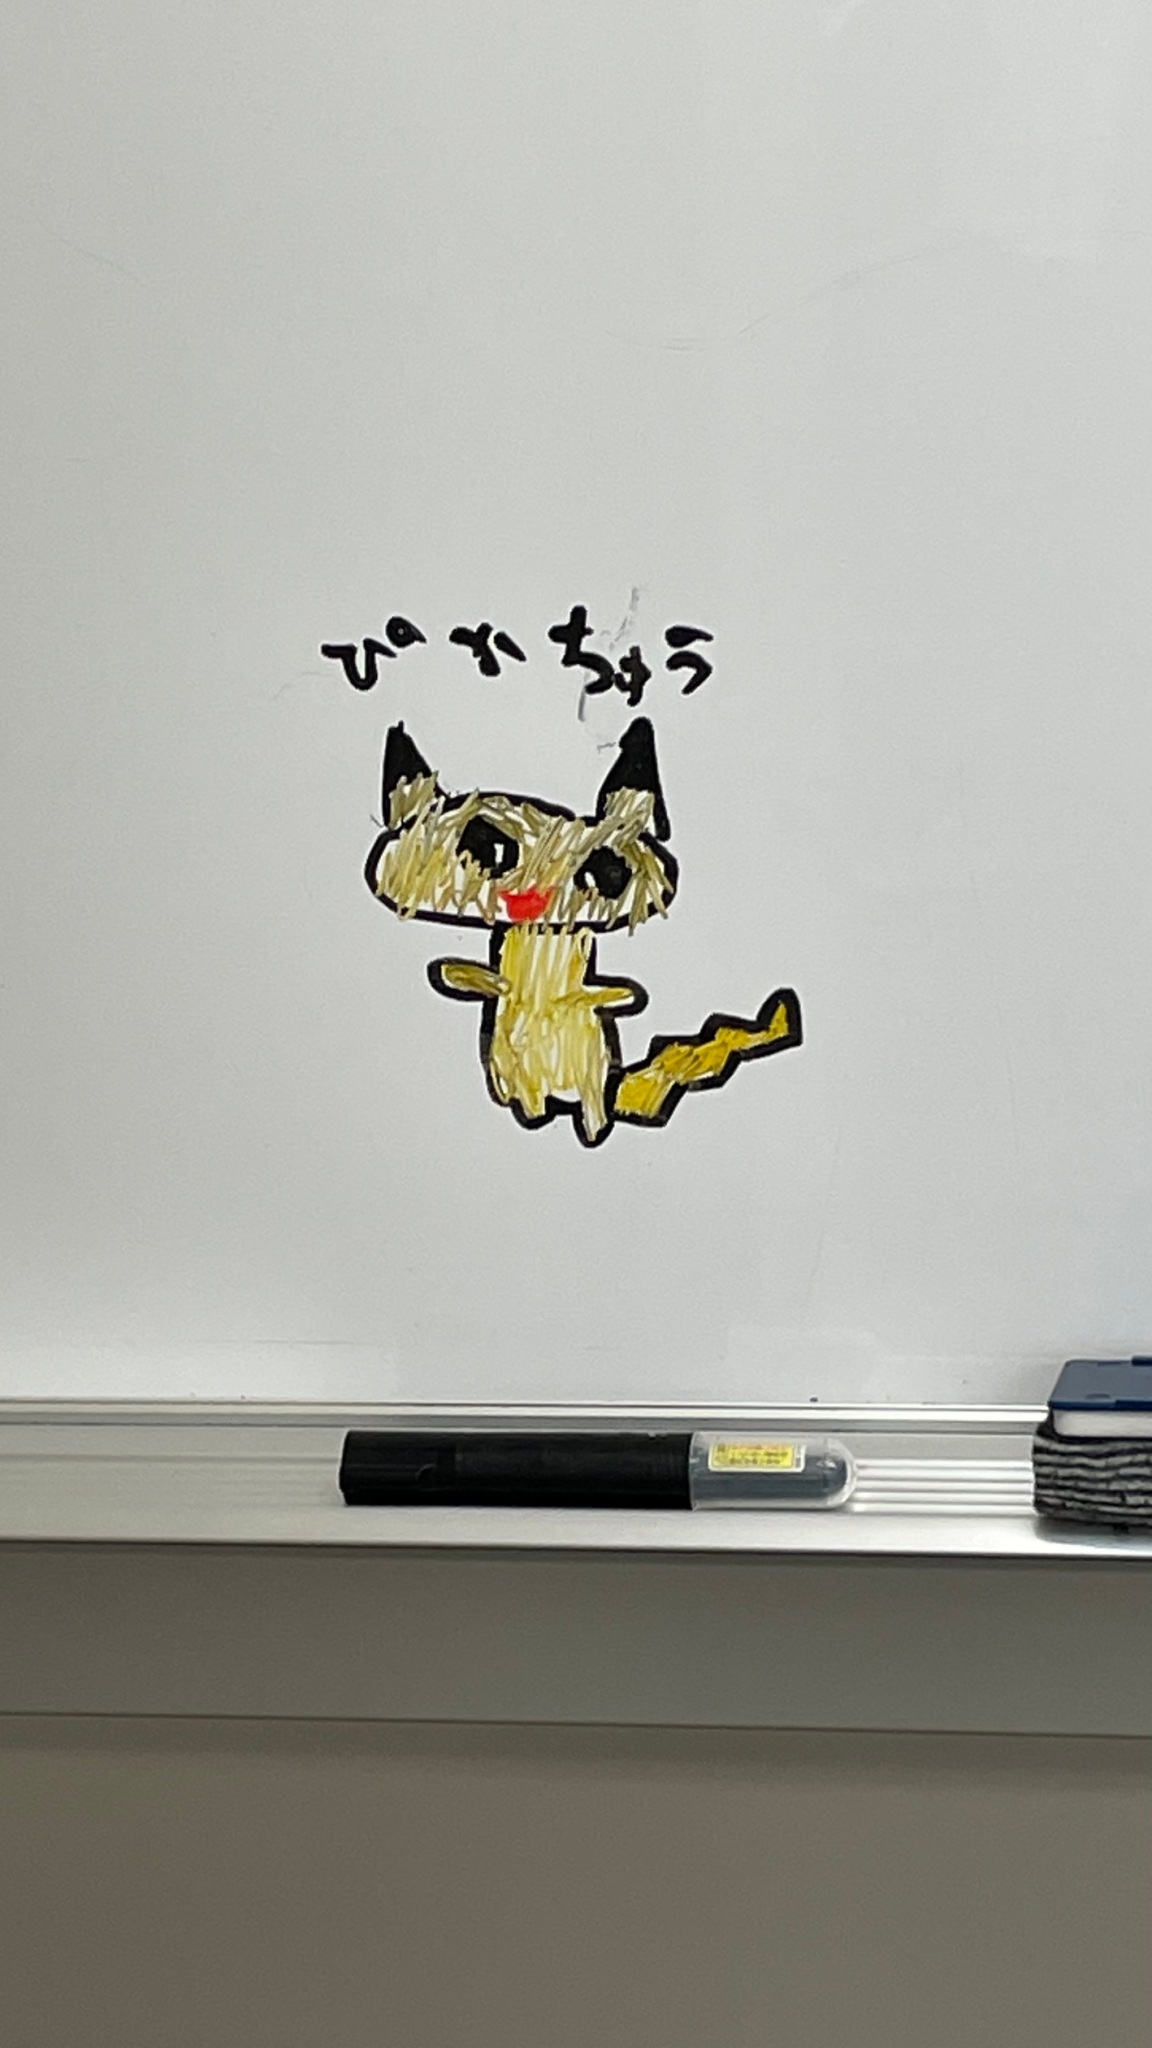 ぴかちゅう